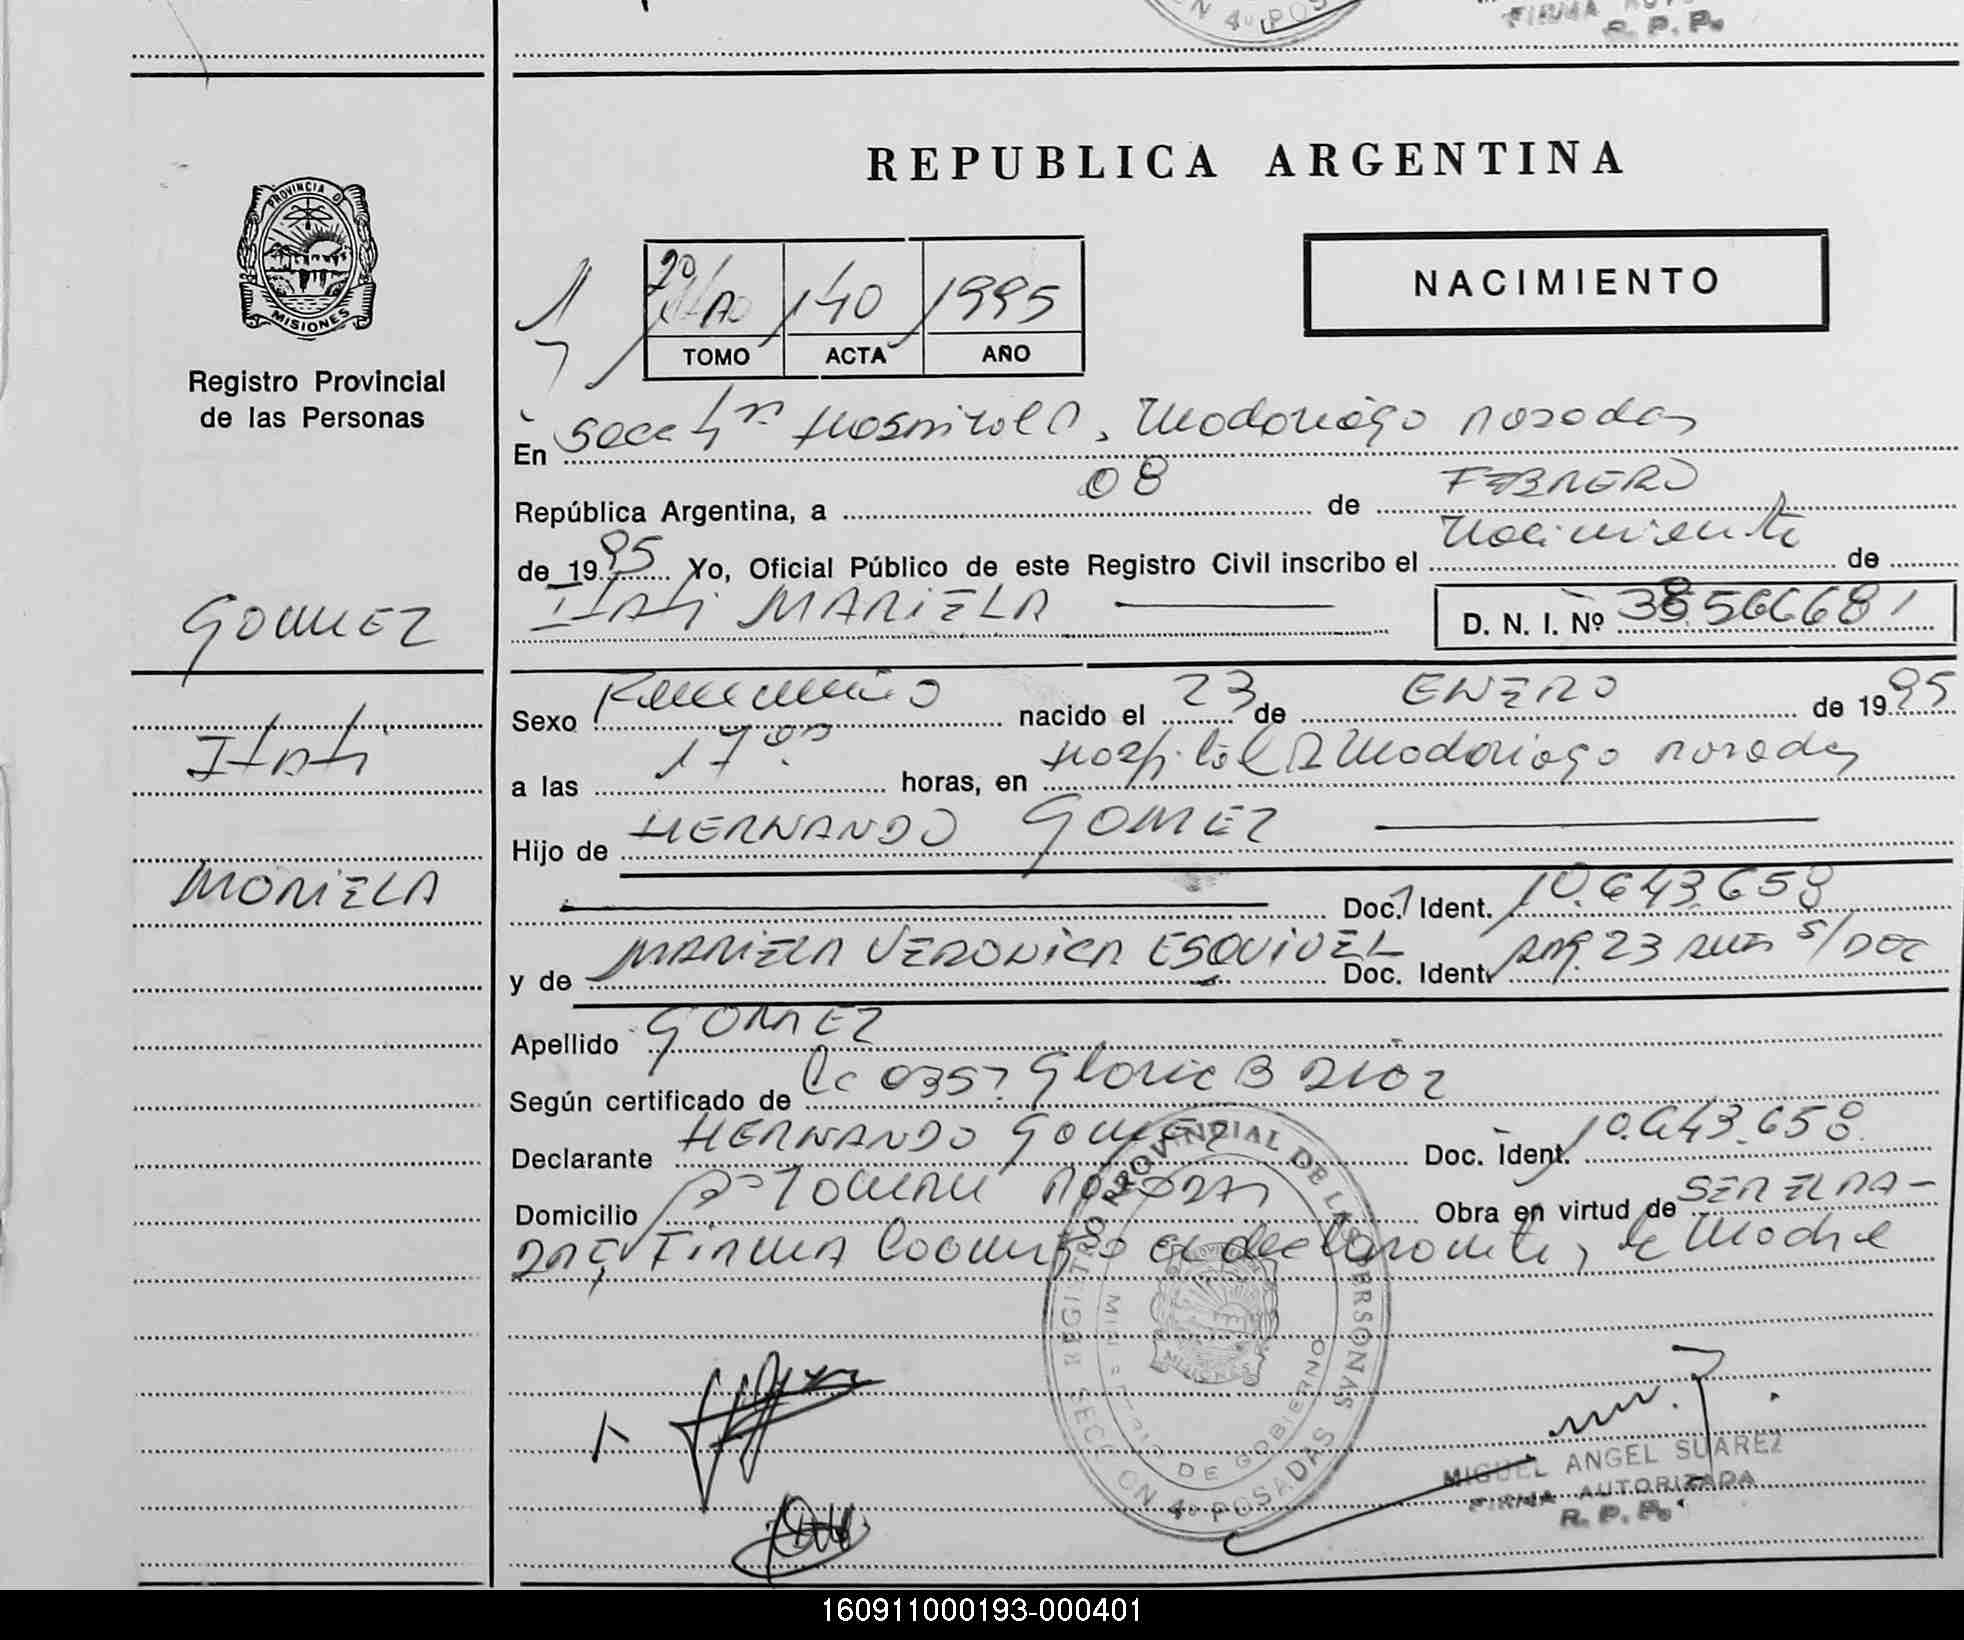 4º POS
FIRMA
R. P. P.
REPUBLICA ARGENTINA
PROVINCIA DE
MISIONES
Registro Provincial
de las Personas
NACIMIENTO
140 1995
TOMO ACTA AÑO
En Secc 4ta Hospital R. Madariaga Posadas
República Argentina, a 08 de FEBRERO
de 1995 Yo, Oficial Público de este Registro Civil inscribo el Nacimiento de
ITATI MARIELA D. N. I. Nº 38.566681
GOMEZ
ITATI
MARIELA
Sexo Femenino nacido el 23 de ENERO de 1995
a las 17 horas, en Hospital R Madariaga Posadas
Hijo de HERNANDO GOMEZ
Doc. Ident. 10.643.658
y de MARIELA VERONICA ESQUIVEL Doc. Ident. 23 años s/DOC
Apellido GOMEZ
Según certificado de 0357 Gloria B Diaz
Declarante HERNANDO GOMEZ Doc. Ident. 10.643.658
Domicilio POSADAS Obra en virtud de SER EL PA-
DRE, FIRMA el declarante, la Madre
REGISTRO PROVINCIAL DE LAS PERSONAS
MINISTERIO DE GOBIERNO
SECCION 4º POSADAS
MIGUEL ANGEL SUAREZ
FIRMA AUTORIZADA
R. P. P.
160911000193-000401